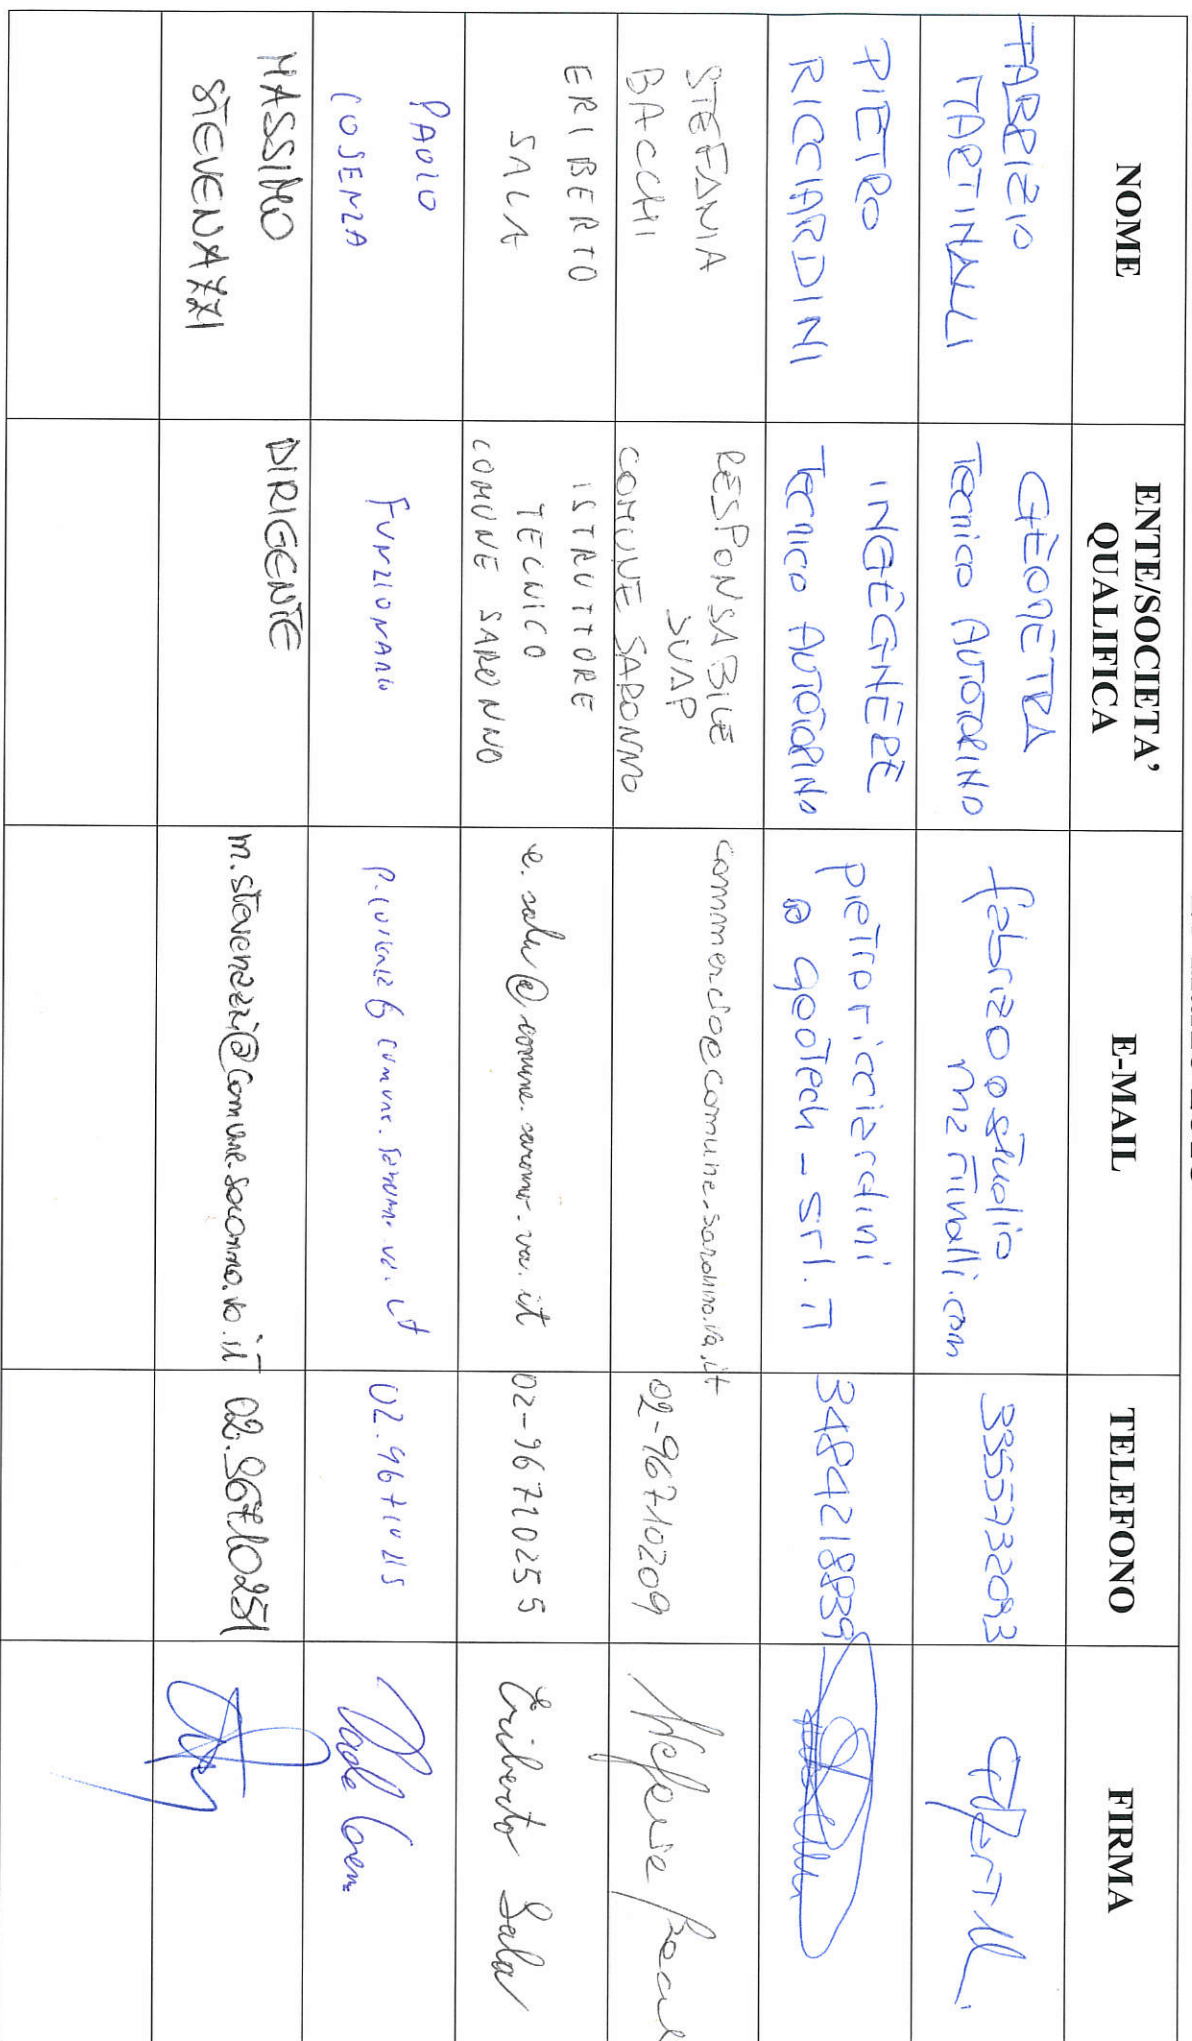 NOME
ENTE/SOCIETA'
QUALIFICA
E-MAIL
TELEFONO
FIRMA
FABRIZIO
MARTINALLI
GEOMETRA
Tecnico AUTOTORINO
fabrizio@studio
martinalli.com
3355732093
PIETRO
RICCIARDINI
INGEGNERE
Tecnico AUTOTORINO
pietroricciardini
@ geotech-srl.it
3484218839
STEFANIA
BACCHI
RESPONSABILE
SUAP
COMUNE SARONNO
commercio@comune.saronno.va.it
02-96710209
ERIBERTO
SALA
ISTRUTTORE
TECNICO
COMUNE SARONNO
e.sala@comune.saronno.va.it
02-96710255
Eriberto Sala
PAOLO
COSENZA
FUNZIONARIO
p.cosenza@comune.saronno.va.it
Paolo Cosenza
MASSIMO
STEVENAZZI
DIRIGENTE
m.stevenazzi@comune.saronno.va.it
02.96710251